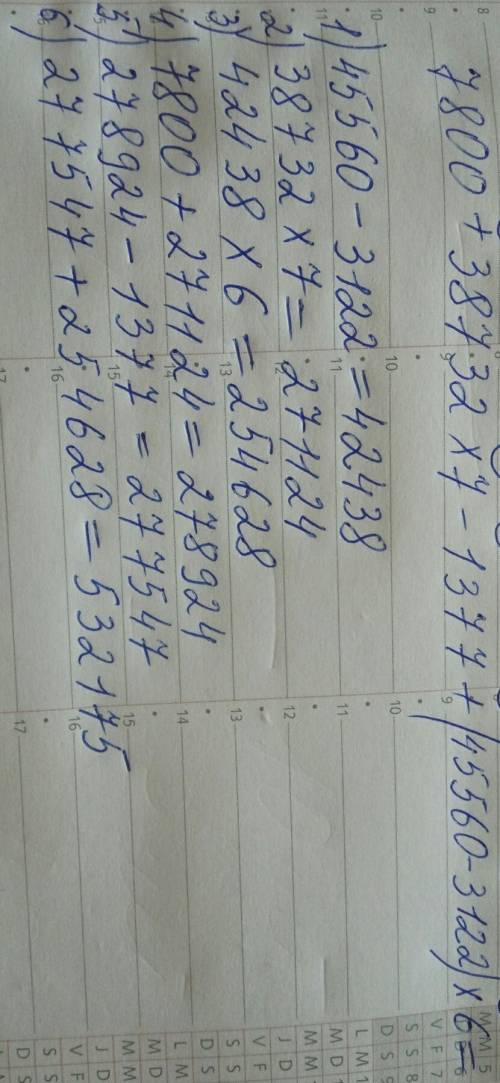 7800 + 38732 x 7 - 1377 + (45560 - 3122) x 6 =
1) 45560 - 3122 = 42438
2) 38732 x 7 = 271124
3) 42438 x 6 = 254628
4) 7800 + 271124 = 278924
5) 278924 - 1377 = 277547
6) 277547 + 254628 = 532175